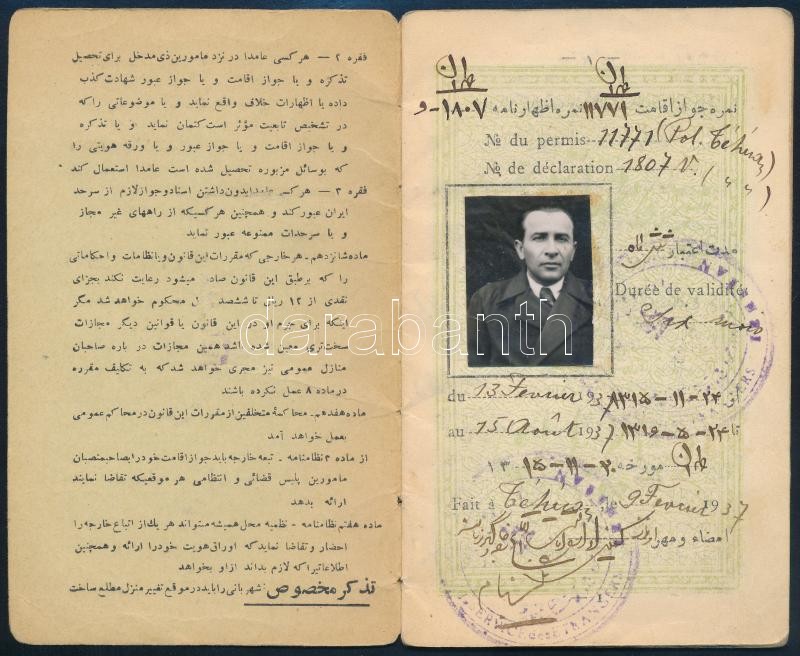 فقره ۲ — هر کسی عامدا در نزد مامورین ذی مدخل برای تحصیل
تذکره و یا جواز اقامت و یا جواز عبور شهادت کذب
داده یا اظهارات خلاف واقع نماید و یا موضوعاتی را که
در تشخیص تابعیت مؤثر است کتمان نماید و یا تذکره
و یا جواز اقامت و یا جواز عبور و یا ورقه هویتی را
که بوسائل مزبوره تحصیل شده است عامدا استعمال کند
فقره ۳ — هر کس عامدا بدون داشتن اسناد و جواز لازم از سرحد
ایران عبور کند و همچنین هر کسیکه از راههای غیر مجاز
و یا سرحدات ممنوعه عبور نماید
ماده شانزدهم ـ هر خارجی که مقررات این قانون و یا نظامات و احکاماتی
را که بر طبق این قانون صادر میشود رعایت نکند بجزای
نقدی از ۱۲ ریال تا ششصد ریال محکوم خواهد شد مگر
اینکه برای جرم او در این قانون یا قوانین دیگر مجازات
سخت‌تری معین شده باشد همین مجازات در باره صاحبان
منازل عمومی نیز مجری خواهد شد که به تکلیف مقرره
در ماده ۸ عمل نکرده باشند
ماده هفدهم ـ محاکمهٔ متخلفین از مقررات این قانون در محاکم عمومی
بعمل خواهد آمد
از ماده ۳ نظامنامه ـ تبعه خارجه باید جواز اقامت خود را بصاحبمنصبان
مامورین پلیس قضائی و انتظامی هر موقعیکه تقاضا نمایند
ارائه بدهد
ماده هفتم نظامنامه ـ نظمیه محل همیشه میتواند هر یك از اتباع خارجه را
احضار و تقاضا نماید که اوراق هویت خود را ارائه و همچنین
اطلاعاتیرا که لازم بداند از او بخواهد
تذکر مخصوص: شهربانی را باید در موقع تغییر منزل مطلع ساخت
نمره جواز اقامت ۱۱۷۷۱ نمره اظهارنامه ۱۸۰۷ـ و
№ du permis 11771 (Pol. Téhéran)
№ de déclaration 1807 V. ( " " )
مدت اعتبار شش ماه
Durée de validité
Six mois
du 13 Fevrier 1937 از ۲۴-۱۱-۱۳۱۵
au 15 Août 1937 تا ۲۴-۵-۱۳۱۶
مورخه ۲۰-۱۱-۱۳۱۵
Fait à Téhéran le 9 Fevrier 1937
امضاء و مهر اداره
1
SERVICE des ETRANGERS
darabanth